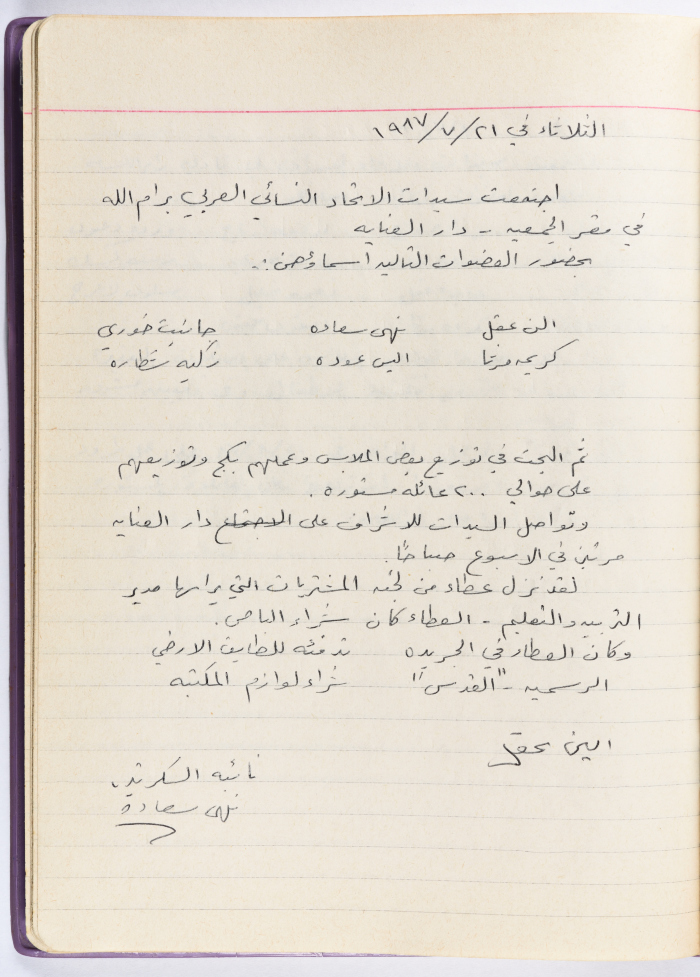 الثلاثاء في ٢١/٧/١٩٨٧
اجتمعت سيدات الاتحاد النسائي العربي برام الله
في مقر الجمعيه - دار العنايه
بحضور العضوات التاليه اسماؤهن :-
الن عقل نهى سعاده جانيت خوري
كريمه اليس عوده زكيه شطاره
تم البحث في توزيع بعض الملابس وعملهم بكج وتوزيعهم
على حوالي ٢٠٠ عائله مستوره .
وتواصل السيدات للاشراف على الاجتماع دار العنايه
مرتين في الاسبوع صباحًا.
لقد نزل عطاء من لجنه المشتريات التي يرأسها مدير
التربيه والتعليم - العطاء كان شراء الباص.
وكان العطاء في الجريده تدفئه للطابق الارضي
الرسميه - "القدس" شراء لوازم المكتبه
الين عقل
نائبه السكرتيره
نهى سعادة